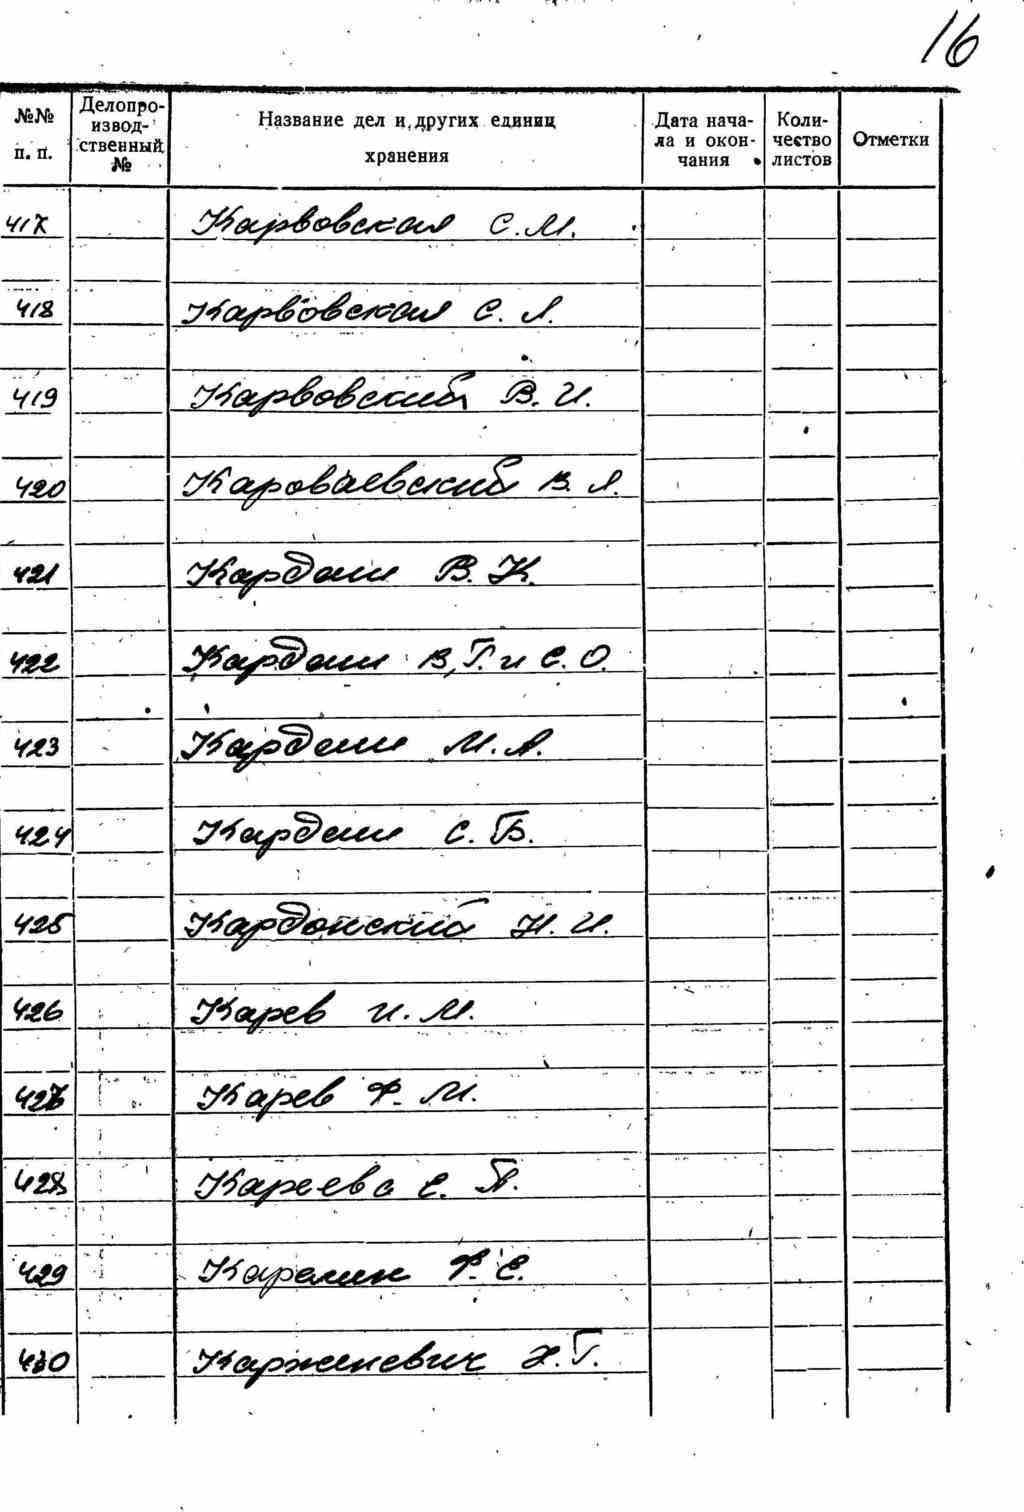 16
№№ п. п. Делопроизводственный № Название дел и других единиц хранения Дата начала и окончания Количество листов Отметки
417 Карвовская С. М.
418 Карвовская С. Л.
419 Карвовский В. И.
420 Кароваевский В. Л.
421 Кардаш В. К.
422 Кардаш В, Г. и С. О.
423 Кардаш М. А.
424 Кардаш С. Б.
425 Кардонский Н. И.
426 Карев И. М.
427 Карев Ф. М.
428 Кареева Е. П.
429 Карелин Ф. Е.
430 Карженевич Х. Г.